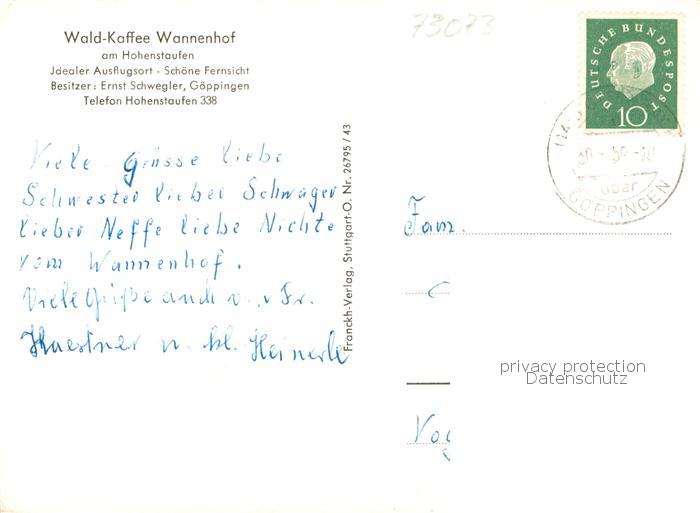 73073
Wald-Kaffee Wannenhof
am Hohenstaufen
Jdealer Ausflugsort - Schöne Fernsicht
Besitzer: Ernst Schwegler, Göppingen
Telefon Hohenstaufen 338
DEUTSCHE BUNDESPOST
10
über
GÖPPINGEN
Viele Grüsse liebe
Schwester lieber Schwager
lieber Neffe liebe Nichte
vom Wannenhof.
Viele Grüße auch v. Fr.
Kaestner u. kl. Heinerle
Franckh-Verlag, Stuttgart-O. Nr. 26795 / 43
Fam.
privacy protection
Datenschutz